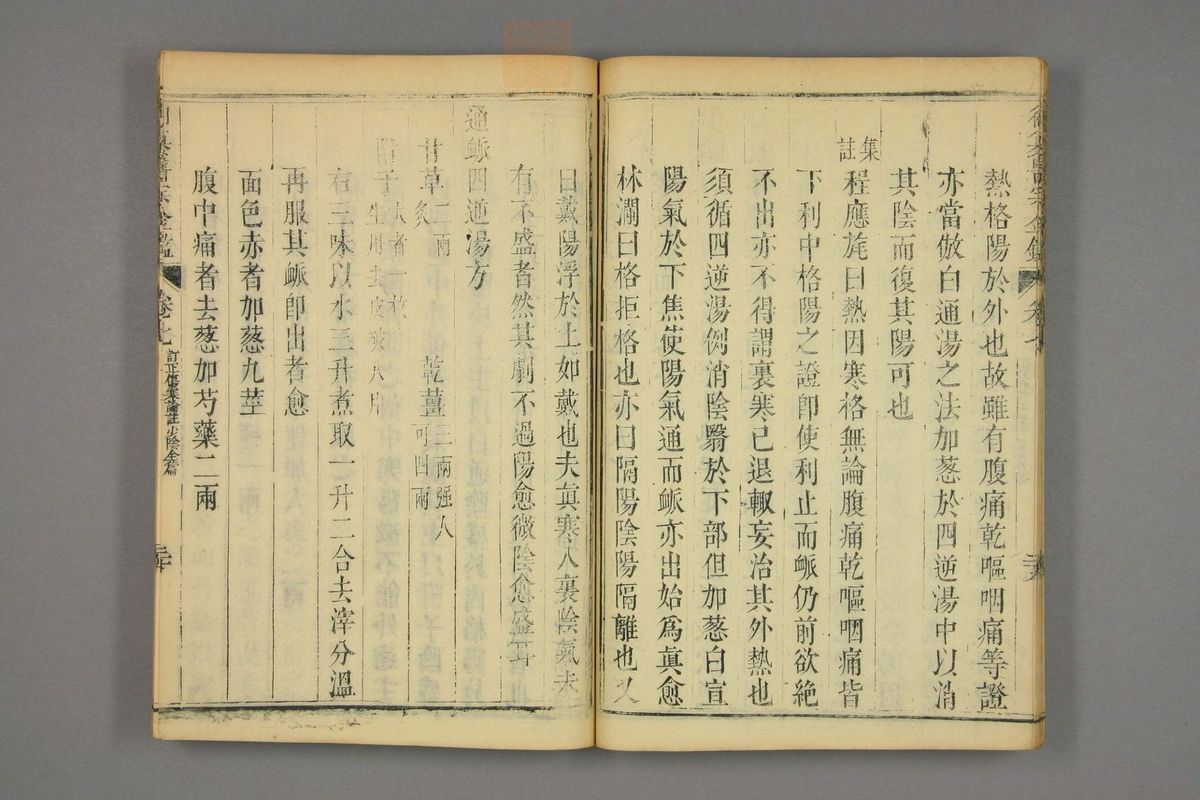 熱格陽於外也故雖有腹痛乾嘔咽痛等證
亦當倣白通湯之法加葱於四逆湯中以消
其陰而復其陽可也
集註
程應旄曰熱因寒格無論腹痛乾嘔咽痛皆
下利中格陽之證即使利止而脈仍前欲絕
不出亦不得謂裏寒已退輙妄治其外熱也
須循四逆湯例消陰翳於下部但加葱白宣
陽氣於下焦使陽氣通而脈亦出始爲眞愈
林瀾曰格拒格也亦曰隔陽陰陽隔離也又
曰戴陽浮於上如戴也夫眞寒入裏陰氣未
有不盛者然其劇不過陽愈微陰愈盛耳
通脈四逆湯方
甘草二兩炙
乾薑三兩强人可四兩
附子大者一枚生用去皮破八片
右三味以水三升煮取一升二合去滓分溫
再服其脈即出者愈
面色赤者加葱九莖
腹中痛者去葱加芍藥二兩
卷七
訂正傷寒論註少陰全篇